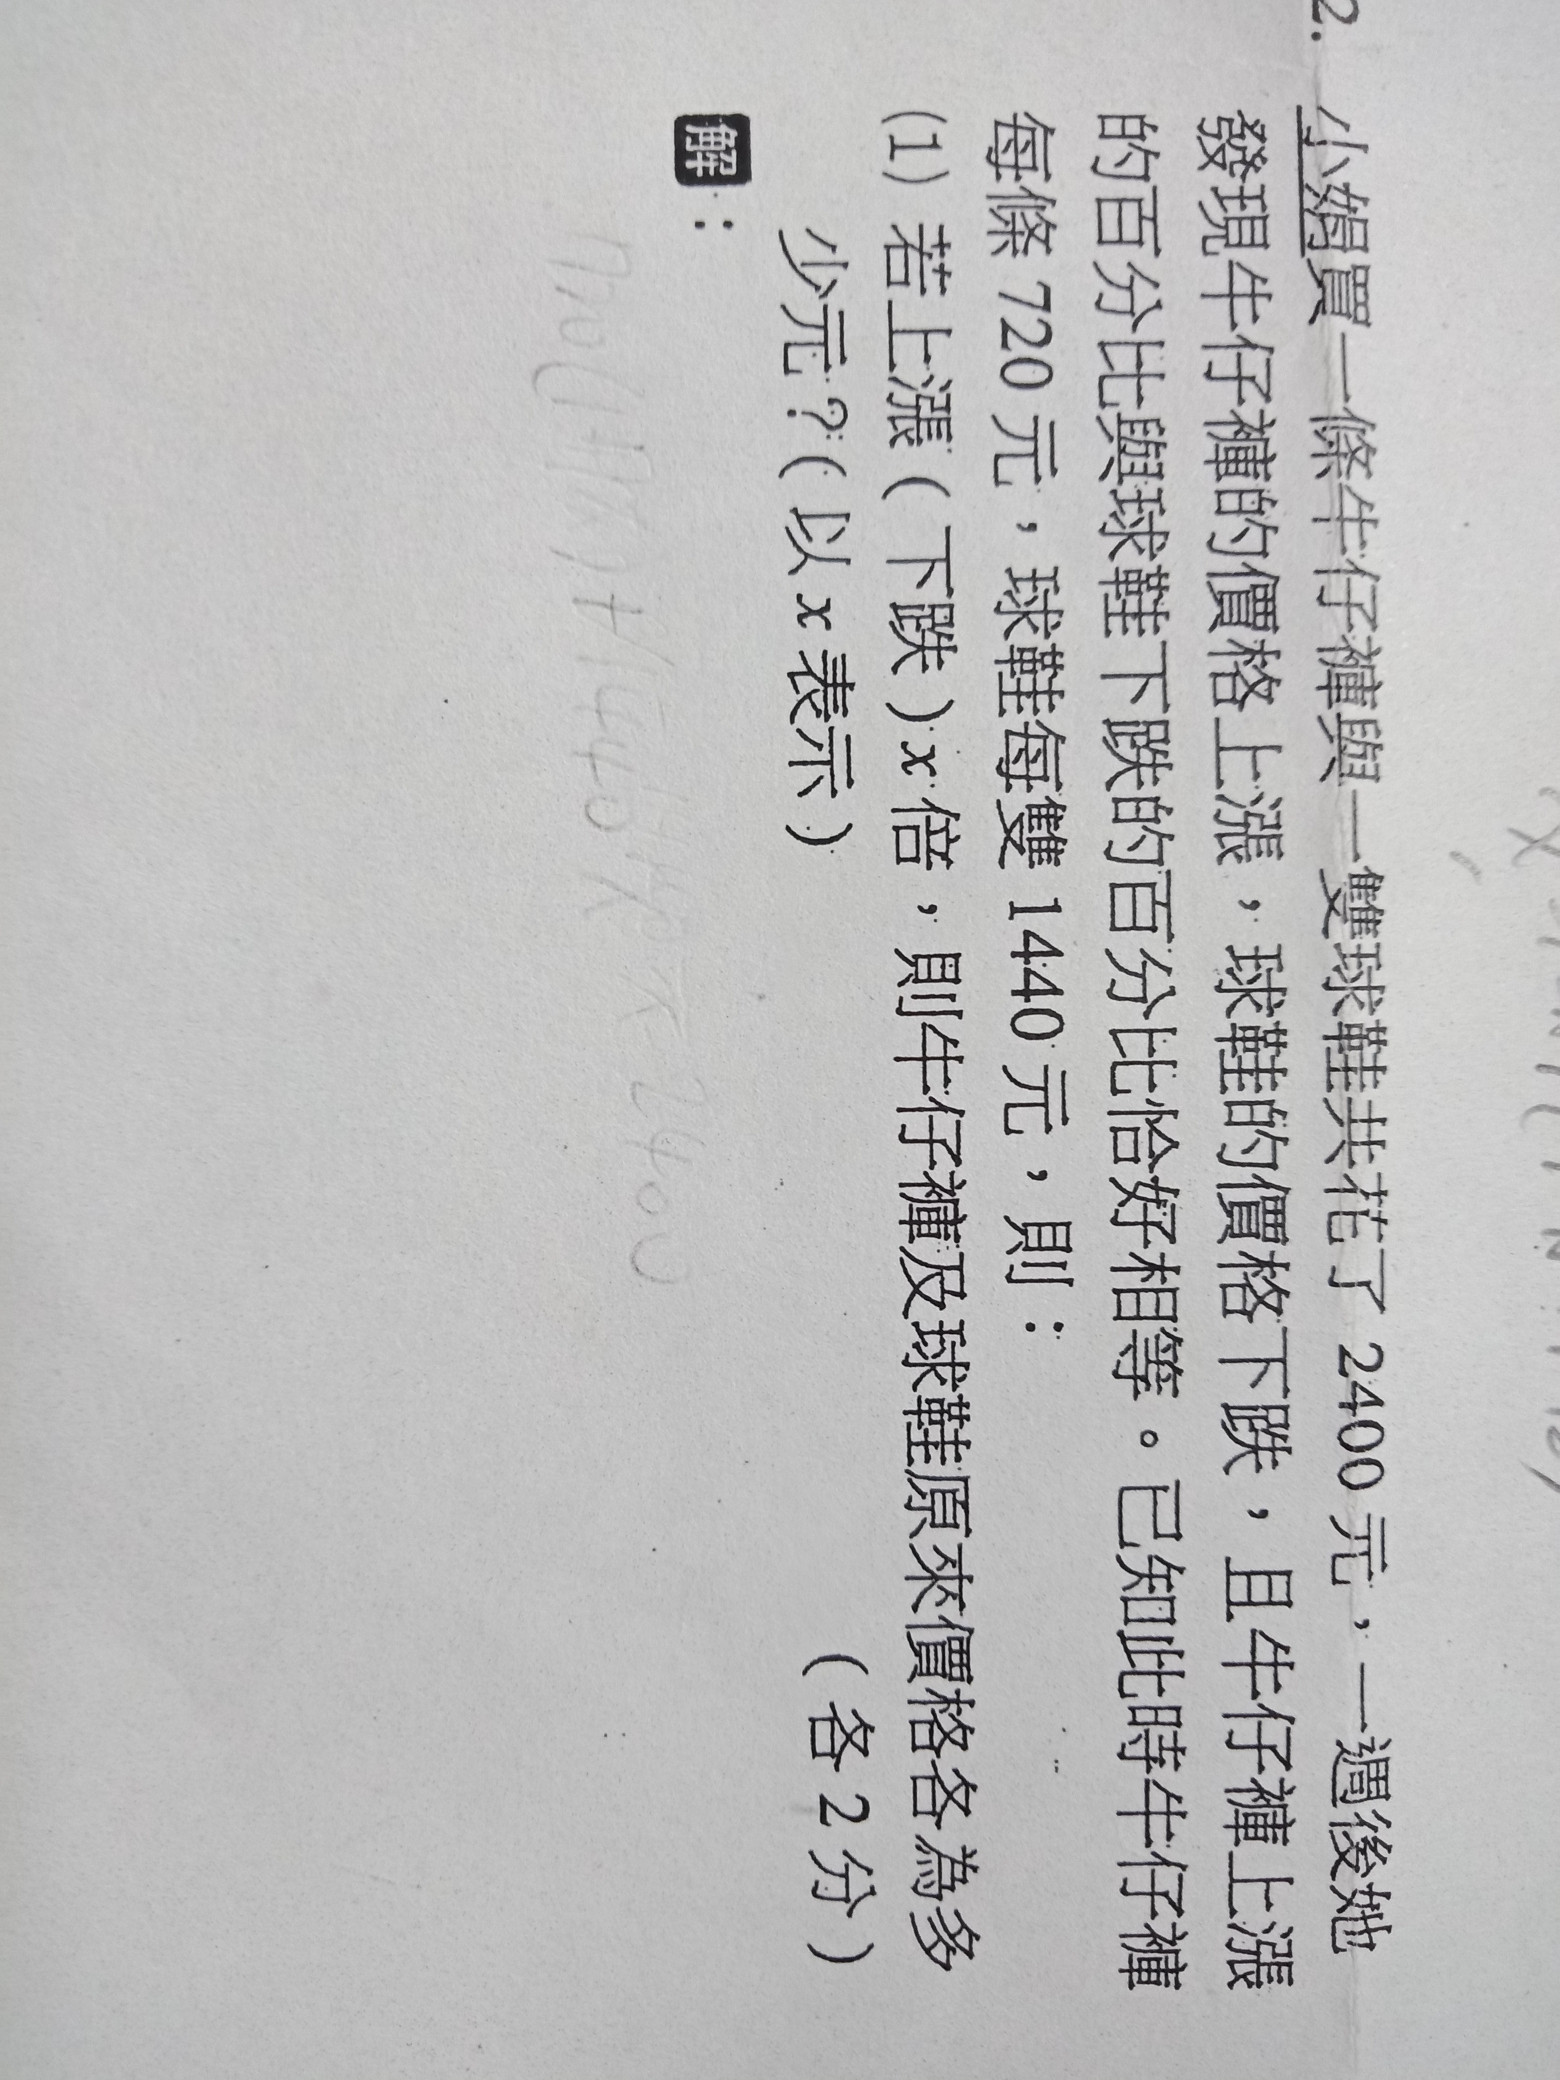 2. 小娟買一條牛仔褲與一雙球鞋共花了 2400 元，一週後她
發現牛仔褲的價格上漲，球鞋的價格下跌，且牛仔褲上漲
的百分比與球鞋下跌的百分比恰好相等。已知此時牛仔褲
每條 720 元，球鞋每雙 1440 元，則：
(1) 若上漲（下跌）x 倍，則牛仔褲及球鞋原來價格各為多
少元？（以 x 表示）（各 2 分）
解：